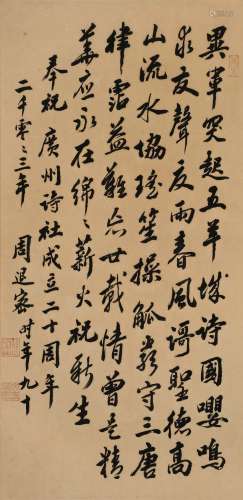 異軍突起五羊城詩國嚶鳴
求友聲夏雨春風謌聖德高
山流水協瑤笙操觚嚴守三唐
律霑益難忘廿載情曾是精
華應永在綿〻薪火祝新生
奉祝廣州詩社成立二十周年
二千零〻三年 周退密時年九十